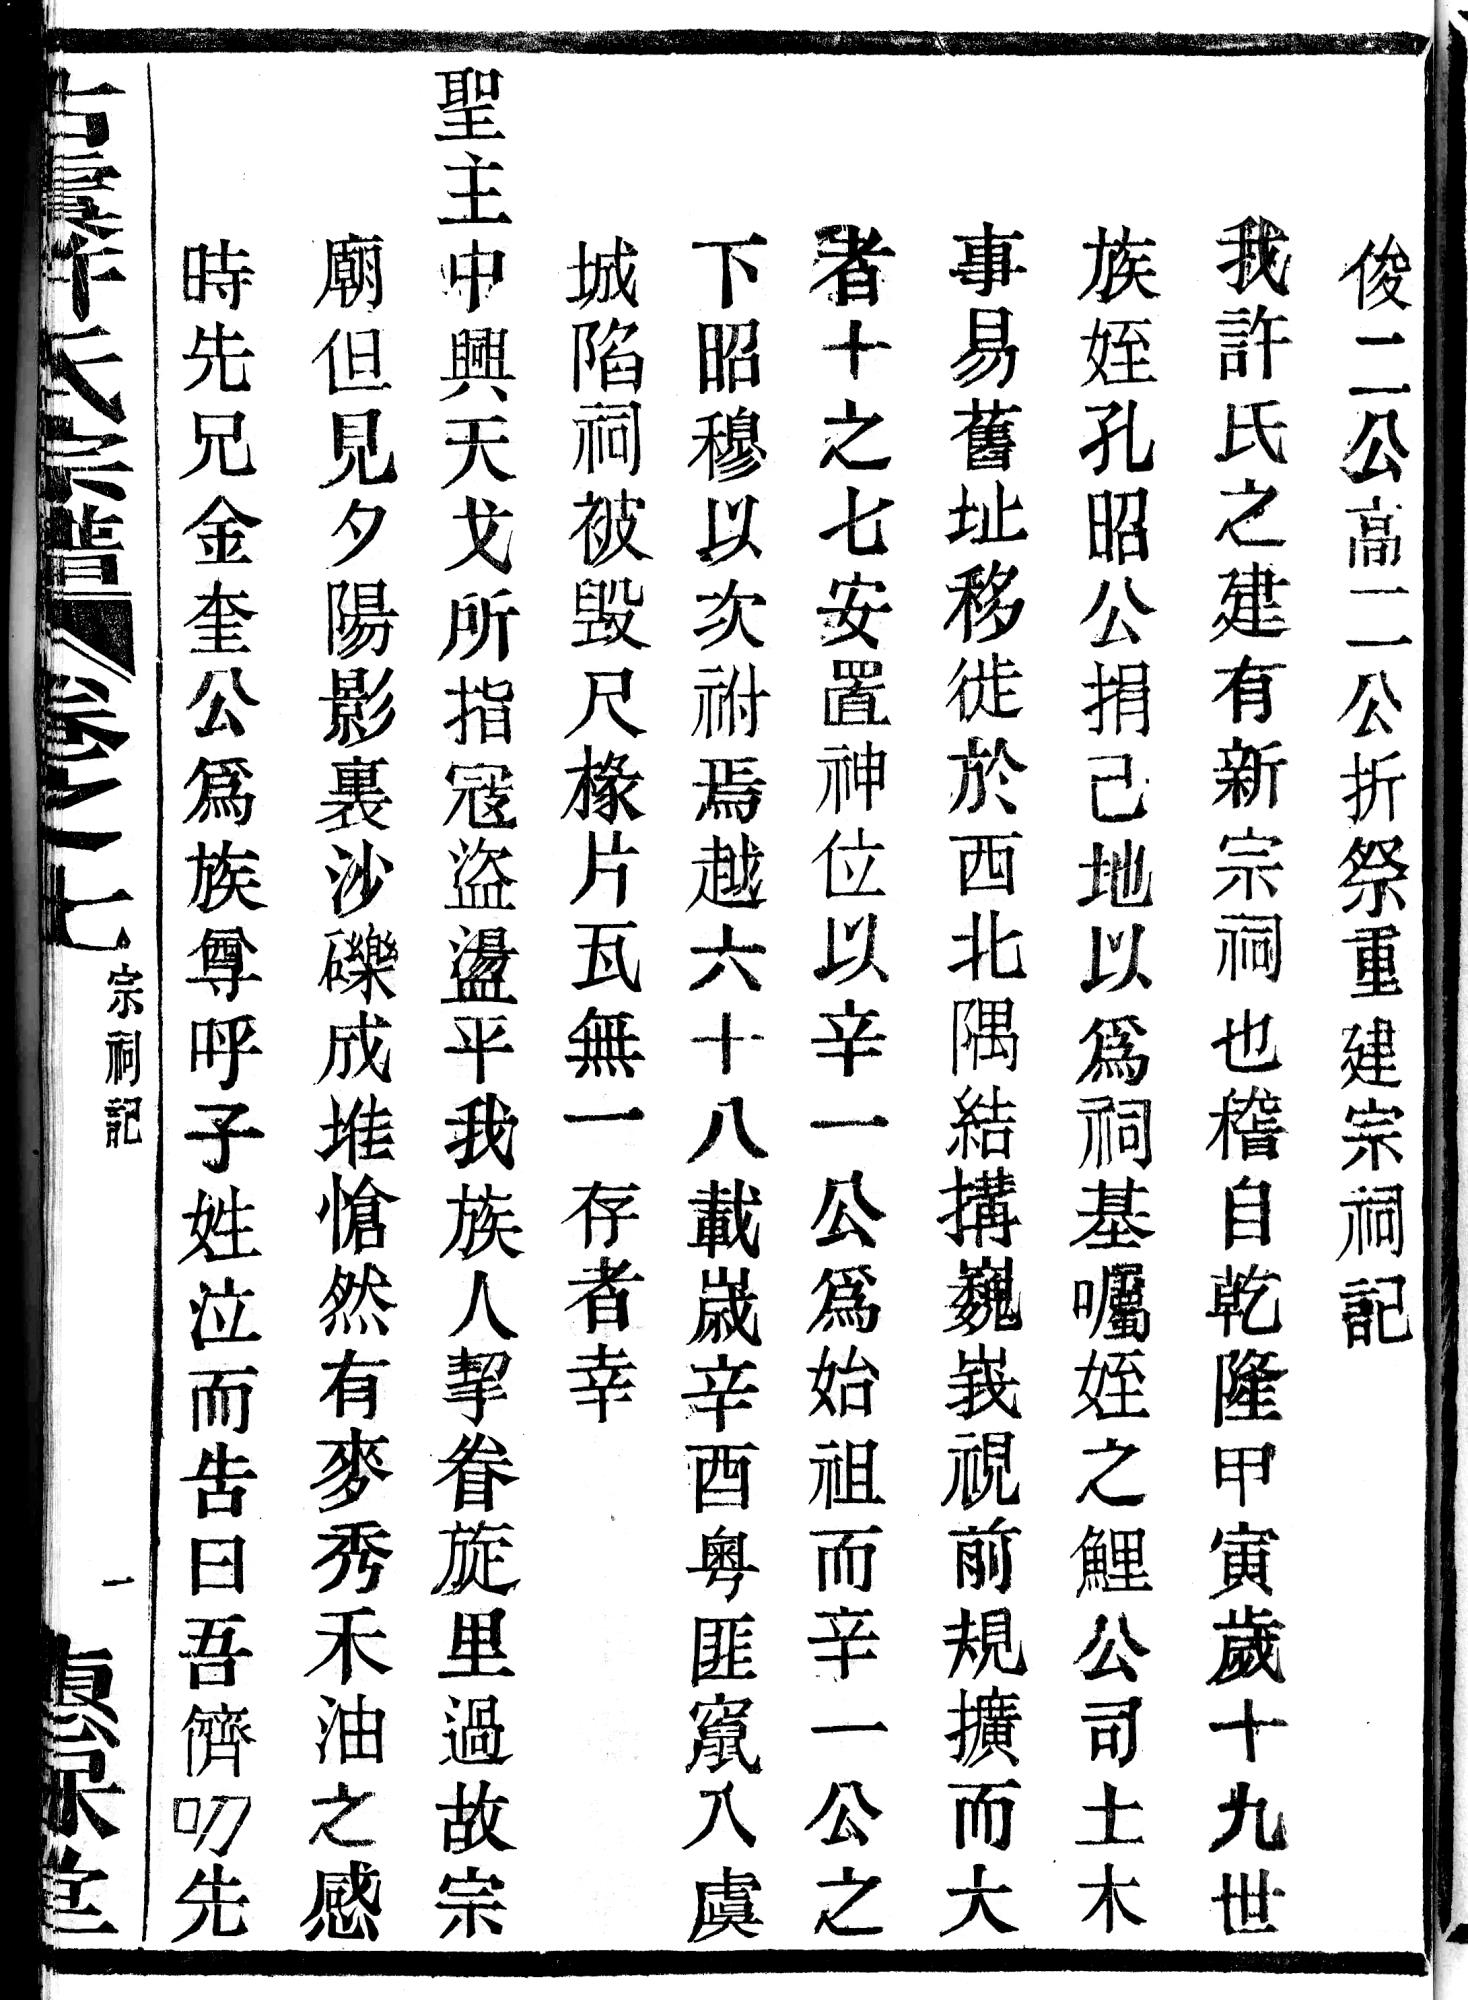 俊二公高二公折祭重建宗祠記
我許氏之建有新宗祠也稽自乾隆甲寅歲十九世
族姪孔昭公捐己地以爲祠基囑姪之鯉公司土木
事易舊址移徙於西北隅結搆巍峩視前規擴而大
者十之七安置神位以辛一公爲始祖而辛一公之
下昭穆以次祔焉越六十八載歲辛酉粵匪竄入虞
城陷祠被毀尺椽片瓦無一存者幸
聖主中興天戈所指寇盜盪平我族人挈眷旋里過故宗
廟但見夕陽影裏沙礫成堆愴然有麥秀禾油之感
時先兄金奎公爲族尊呼子姓泣而告曰吾儕叨先
氏宗譜
卷之七
宗祠記
一
堂